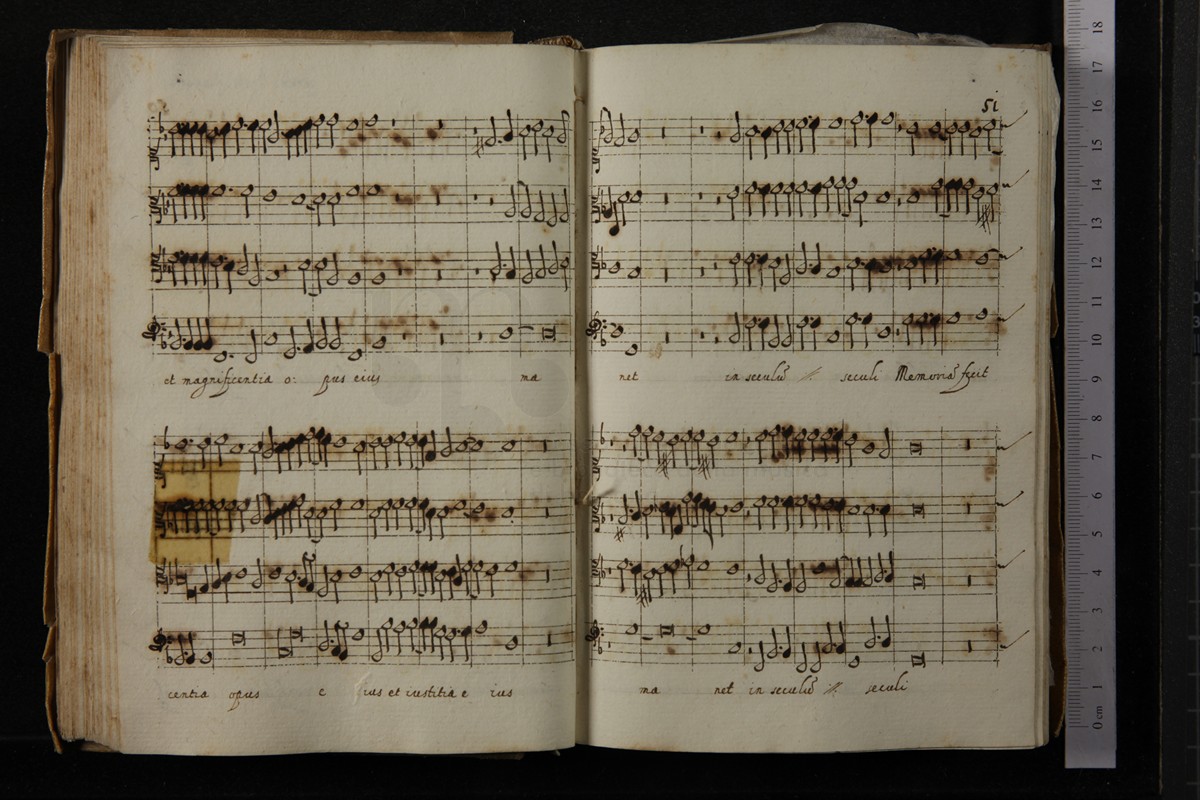 51
et magnificentia o: pus eius ma
net in seculũ // seculi Memoriã fecit
centia opus e ius et iustitia e ius
ma net in seculũ // seculi
18
17
16
15
14
13
12
11
10
9
8
7
6
5
4
3
2
1
0 cm